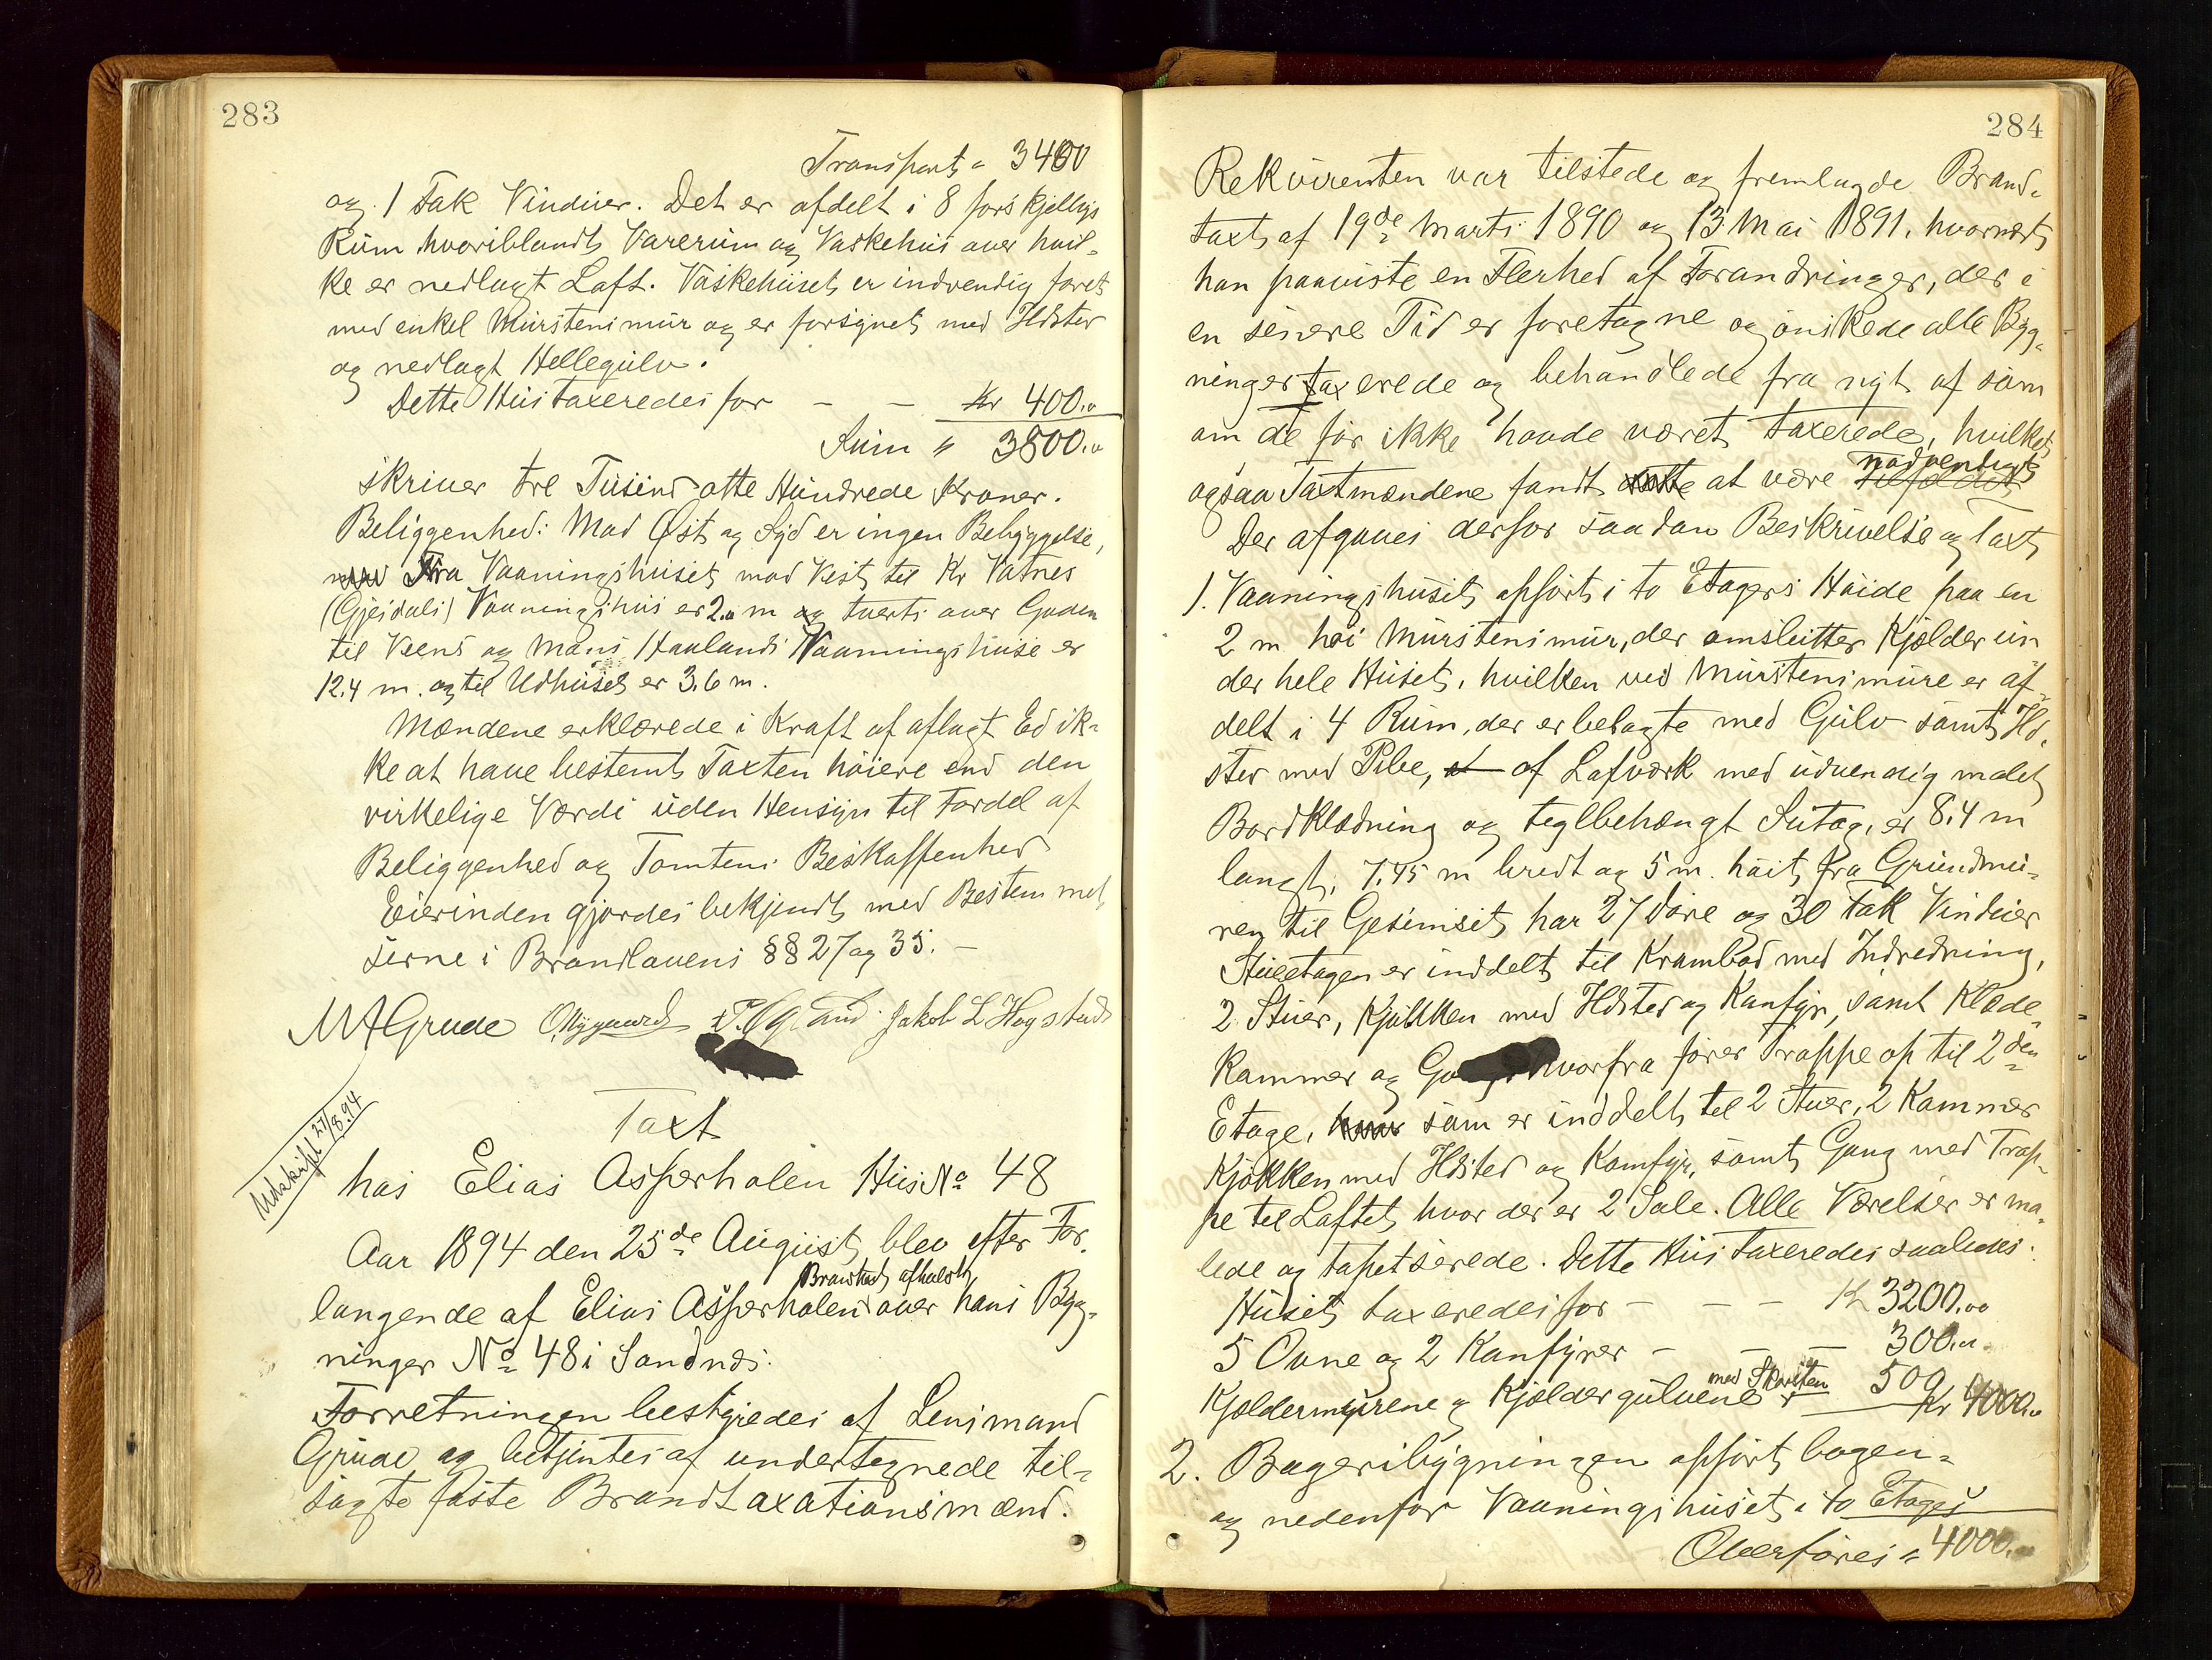 283
Transport " 3400
og 1 Fak Vinduer. Det er afdelt i 8 forskjellige
Rum hvoriblandt Varerum og Vaskehus over hvil-
ke er nedlagt Loft. Vaskehuset er indvendig foret
med enkel Murstensmur og er forsynet med Ildsted
og nedlagt Hellegulv.
Dette Hus taxeredes for - - Kr 400.00
Sum " 3800.00
skriver tre Tusind otte Hundrede Kroner.
Beliggenhed: Mod Øst og Syd er ingen Bebyggelse,
Fra Vaaningshuset mod Vest til Kr Vatnes
(Gjesdals) Vaaningshus er 2.0 m og tverts over Gaden
til Veens og Mans Haalands Vaaningshuse er
12.4 m. og til Udhuset er 3.6 m.
Mændene erklærede i Kraft af aflagt Ed ik-
ke at have bestemt Taxten høiere end den
virkelige Værdi uden Hensyn til Fordel af
Beliggenhed og Tomtens Beskaffenhed
Eierinden gjordes bekjendt med Bestemmel-
serne i Brandlovens §§ 27 og 35. -
MAGrude O. Nygaard Jakob L Hogstad
Udskrift 27/8.94
Taxt
hos Elias Asperholen Hus No 48
Aar 1894 den 25de August blev efter For-
langende af Elias Asperholen Brandtaxt afholdt over hans Byg-
ninger No 48 i Sandnæs.
Forretningen bestyredes af Lensmand
Grude og betjentes af undertegnede til-
sagte faste Brandtaxationsmænd.
284
Rekvirenten var tilstede og fremlagde Brand-
taxt af 19de Marts 1890 og 13 Mai 1891, hvornæst
han paaviste en Flerhed af Forandringer, der i
en senere Tid er foretagne og ønskede alle Byg-
ninger taxerede og behandlede fra nyt af som
om de før ikke havde været taxerede, hvilket
ogsaa Taxtmændene fandt at være nødvendigt
Der afgaves derfor saadan Beskrivelse og Taxt
1. Vaaningshuset opført i to Etagers Høide paa en
2 m høi Murstensmur, der omslutter Kjælder un
der hele Huset, hvilken ved Murstensmure er af-
delt i 4 Rum, der er belagte med Gulv samt Ild-
sted med Pibe, af Lafværk med udvendig malet
Bordklædning og teglbehængt Sutag, er 8.4 m
langt, 7.45 m bredt og 5 m. høit fra Grundmu-
ren til Gesimset, har 27 Døre og 30 Fak Vinduer
Stueetagen er inddelt til Krambod med Indredning,
2 Stuer, Kjøkken med Ildsted og Kamfyr, samt Klæde-
kammer og Gang hvorfra fører Trappe op til 2den
Etage, som er inddelt til 2 Stuer, 2 Kammer
Kjøkken med Ildsted og Komfyr, samt Gang med Trap-
pe til Loftet, hvor der er 2 Sale. Alle Værelser er ma-
lede og tapetserede. Dette Hus taxeredes saaledes:
Huset taxeredes for - - - Kr 3200.00
5 Ovne og 2 Kamfyrer - - - 300.00
Kjældermurene og Kjældergulvene med Skorsten 500 Kr 4000.00
2. Bageribygningen opført bagen-
og nedenfor Vaaningshuset i to Etages
Overføres " 4000.00